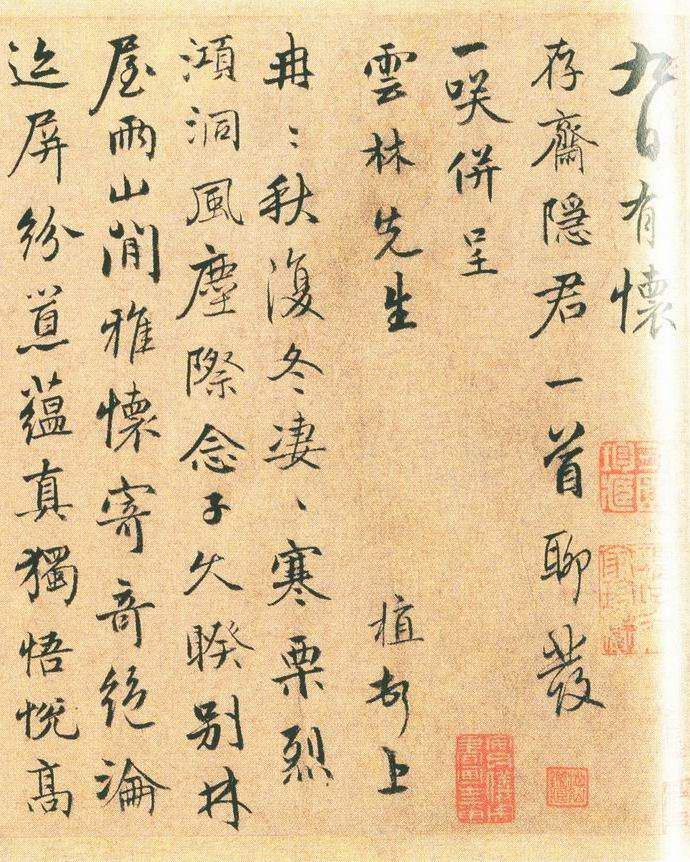 九日有懷
存齋隱君一首聊發
一咲併呈
雲林先生 植頓上
冉〻秋復冬淒〻寒栗烈
澒洞風塵際念子久暌別林
屋兩山間雅懷寄奇絕淪
迹屏紛蒕蘊真獨悟悅高